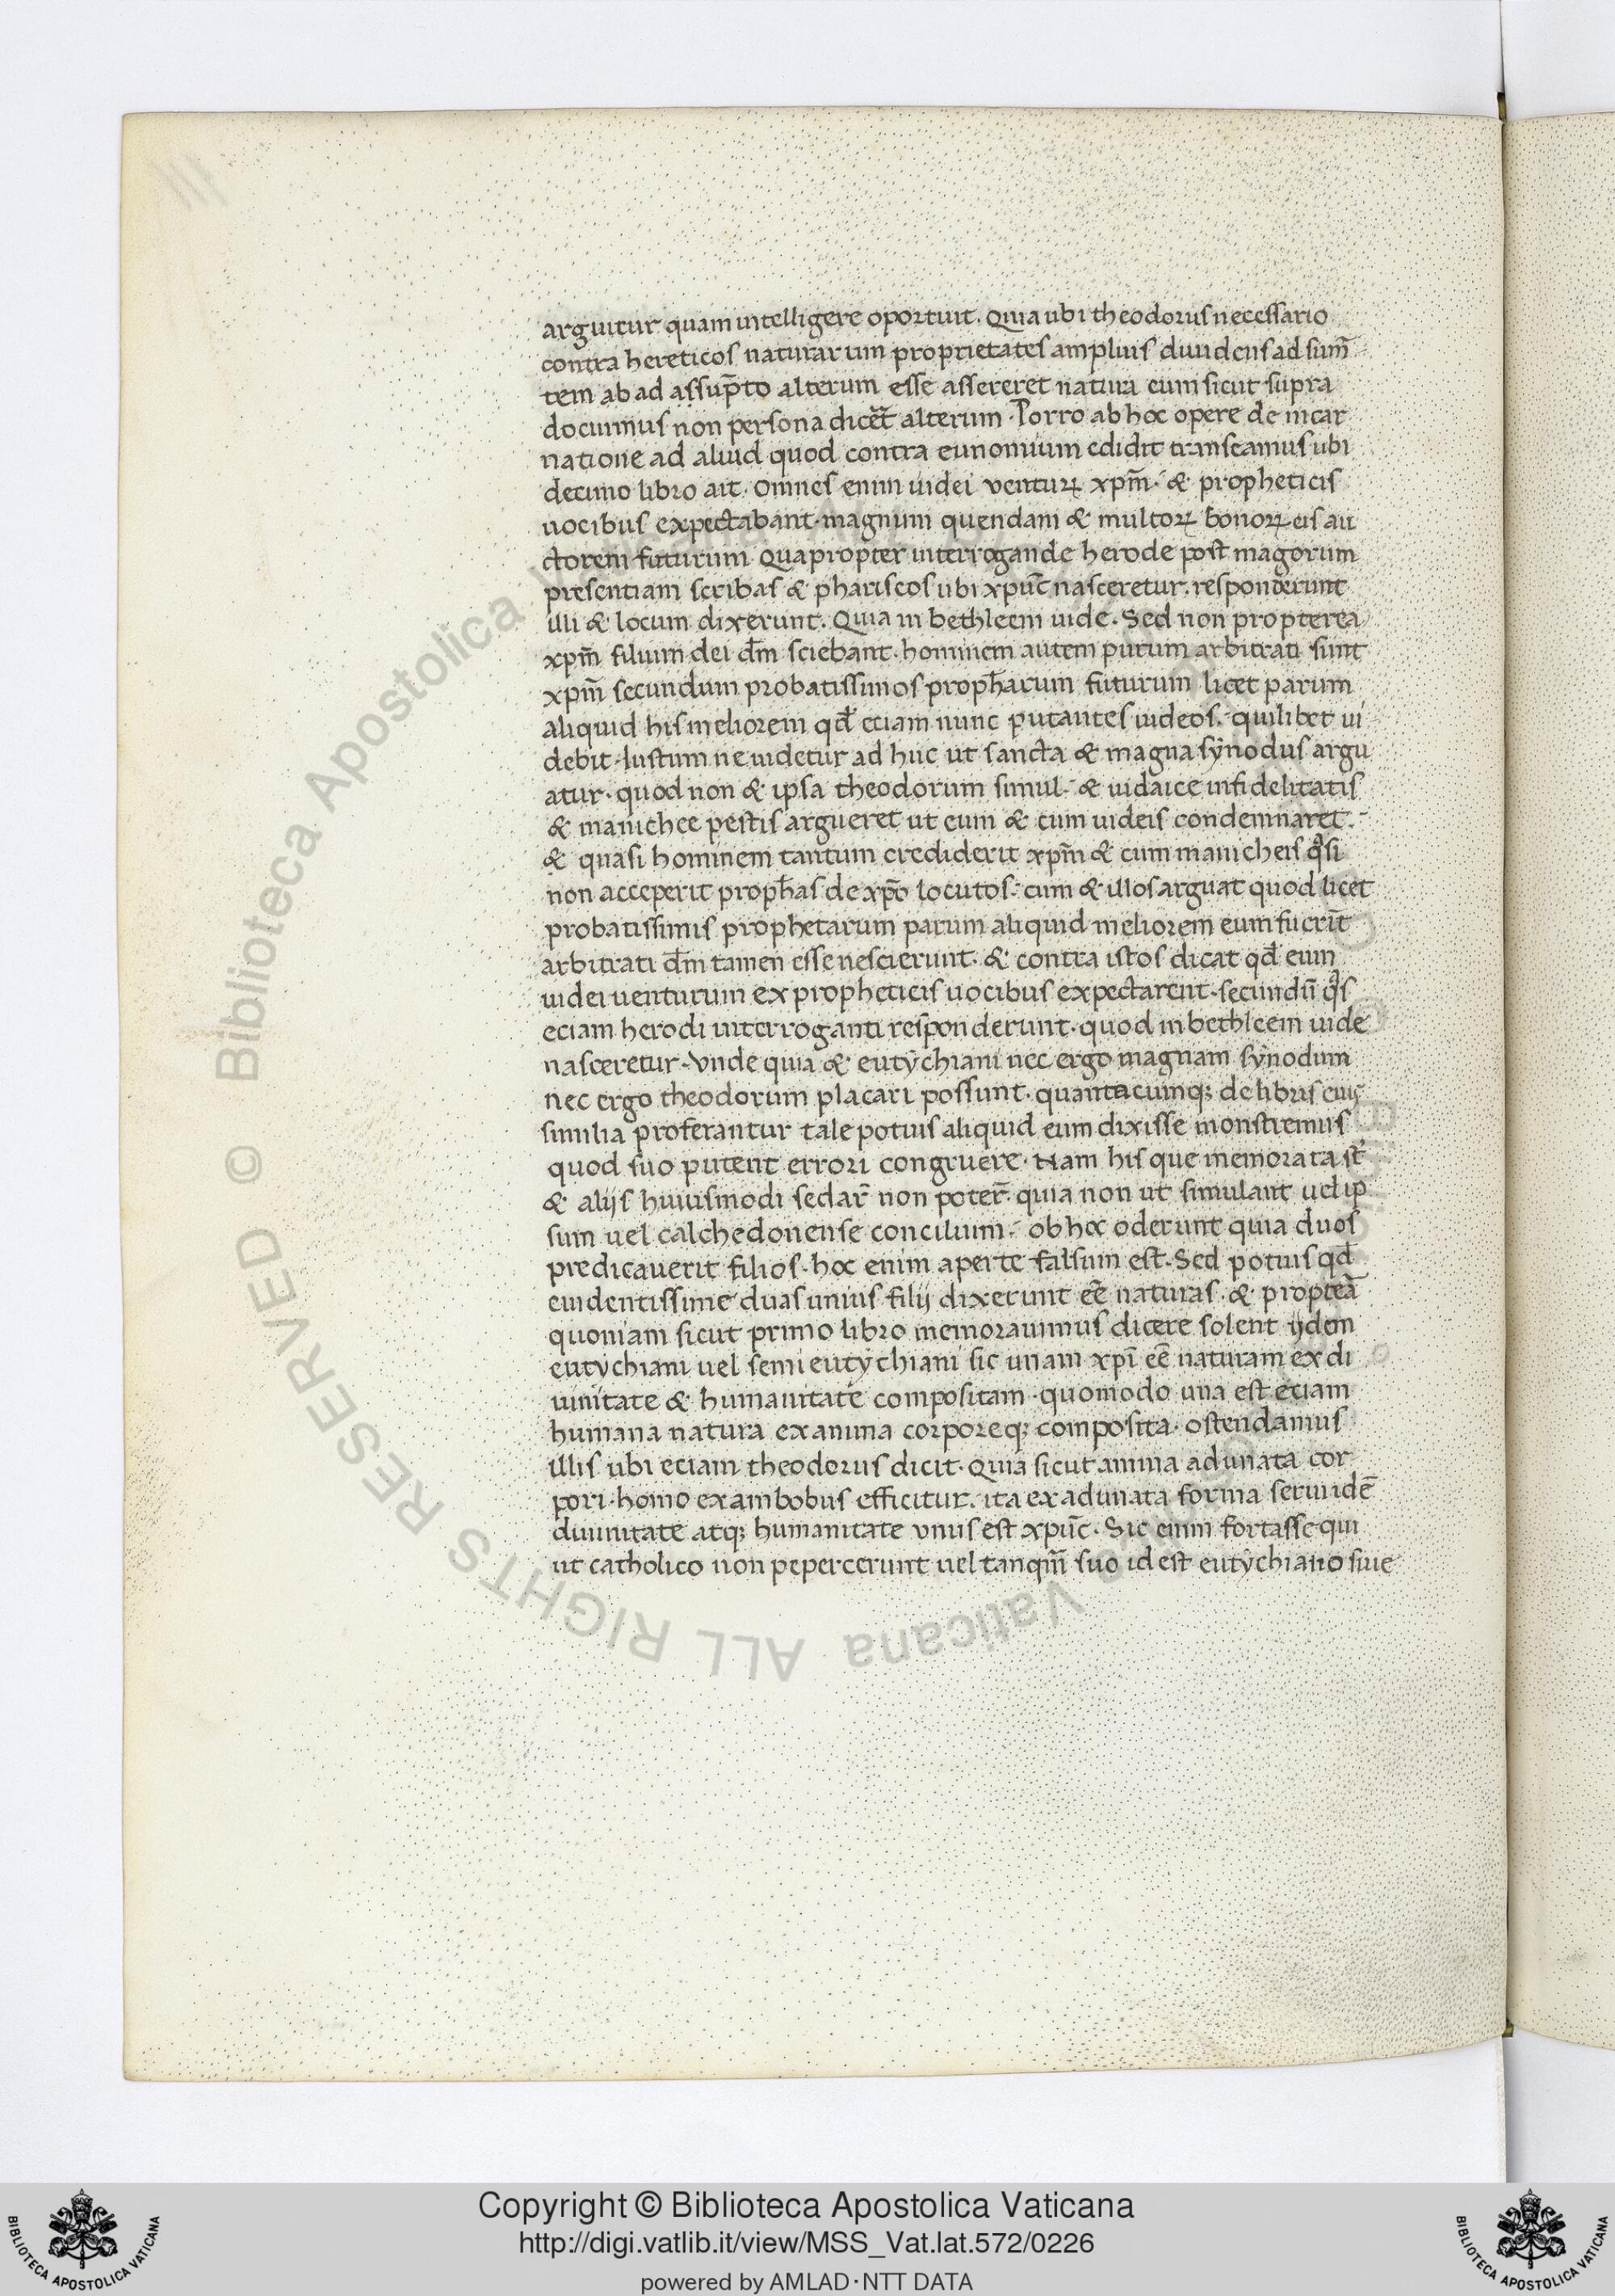 arguitur quam intelligere oportuit. Quia ubi theodorus necessario
contra hereticos naturarum proprietates amplius diuidens adsum̄
tem ab ad assup̄to alterum esse assereret natura eum sicut supra
docuimus non persona dic̄et alterum. Porro ab hoc opere de incar
natione ad aliud quod contra eunomium edidit transeamus ubi
decimo libro ait. Omnes enim iudei ventuꝝ xpm̄. & propheticis
uocibus expectabant. magnum quendam & multoꝝ bonoꝝ eis au
ctorem futurum. Quapropter interrogande herode post magorum
presentiam scribas & phariseos ubi xpūc nasceretur. responderunt
illi & locum dixerunt. Quia in bethleem iude. Sed non propterea
xpm̄ filium dei dm̄ sciebant. hominem autem purum arbitrati sunt
xpm̄ secundum probatissimos propharum futurum licet parum
aliquid his meliorem qd̄ eciam nunc putantes iudeos. quilibet ui
debit. Iustum ne uidetur ad huc ut sancta & magna synodus argu
atur. quod non & ipsa theodorum simul. & iudaice infidelitatis
& manichee pestis argueret ut eum & cum iudeis condemnaret.
& quasi hominem tantum crediderit xpm̄ & cum manicheis qͣsi
non acceperit prophas de xpō locutos. cum & illos arguat quod licet
probatissimis prophetarum parum aliquid meliorem eum fuerīt
arbitrati dm̄ tamen esse nescierunt. & contra istos dicat qd̄ eum
iudei uenturum ex propheticis uocibus expectarent. secundū qͦs
eciam herodi interroganti responderunt. quod in bethleem iude
nasceretur. Vnde quia & eutychiani nec ergo magnam synodum
nec ergo theodorum placari possunt. quantacumqꝫ de libris eiꝰ
similia proferantur tale potius aliquid eum dixisse monstremus
quod suo putent errori congruere. Nam his que memorata st̄
& alijs huiusmodi sedar̄ non poter̄. quia non ut simulant uel ip
sum uel calchedonense concilium. ob hoc oderunt quia duos
predicauerit filios. hoc enim aperte falsum est. Sed potius qd̄
euidentissime duas unius filij dixerunt eē naturas. & propteā
quoniam sicut primo libro memorauimus dicere solent ijdem
eutychiani uel semieutychiani sic unam xpī eē naturam ex di
uinitate & humanitate compositam. quomodo una est eciam
humana natura ex anima corporeqꝫ composita. ostendamus
illis ubi eciam theodorus dicit. Quia sicut anima adunata cor
pori. homo ex ambobus efficitur. ita ex adunata forma serui idē
diuinitate atqꝫ humanitate vnus est xpūc. Sic enim fortasse qui
ut catholico non pepercerunt uel tanqm̄ suo id est eutychiano siue
Copyright © Biblioteca Apostolica Vaticana
http://digi.vatlib.it/view/MSS_Vat.lat.572/0226
powered by AMLAD·NTT DATA
BIBLIOTECA APOSTOLICA VATICANA
BIBLIOTECA APOSTOLICA VATICANA
© Biblioteca Apostolica Vaticana ALL RIGHTS RESERVED